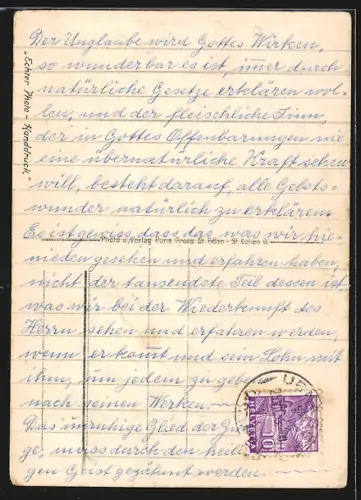 Der Unglaube wird Gottes Wirken,
so wunderbar es ist, im̅er durch
natürliche Gesetze erklären wol-
len, und der fleischliche Sinn,
der in Gottes Offenbarungen nie
eine übernatürliche Kraft sehen
will, besteht darauf, alle Gebets-
wunder natürlich zu erklären.
Es ist gewiss dass das, was wir hie-
nieden gesehen und erfahren haben,
nicht der tausendste Teil dessen ist,
was wir bei der Wiederkunft des
Herrn sehen und erfahren werden,
wenn er kom̅t und sein Lohn mit
ihm, um jedem zu geben
nach seinen Werken.
Das unruhige Glied der Zun-
ge, muss durch den heili-
gen Geist gezähmt werden.
"Echter Photo-Handdruck"
Photo u. Verlag Hans Gross St. Fiden - St. Gallen O.
HELVETIA
10